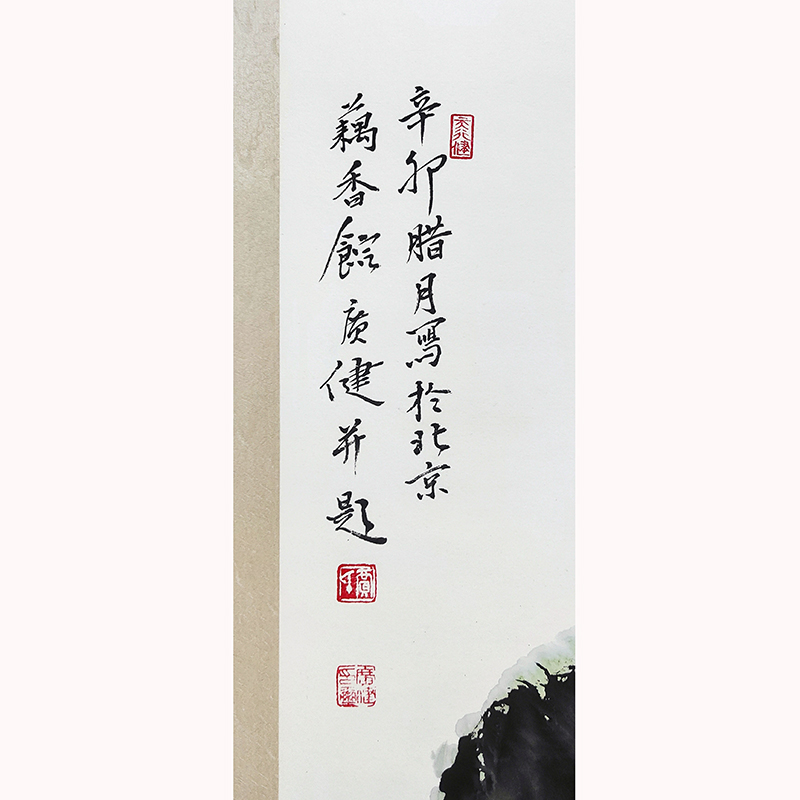 辛卯腊月寫於北京
藕香館廣健并題